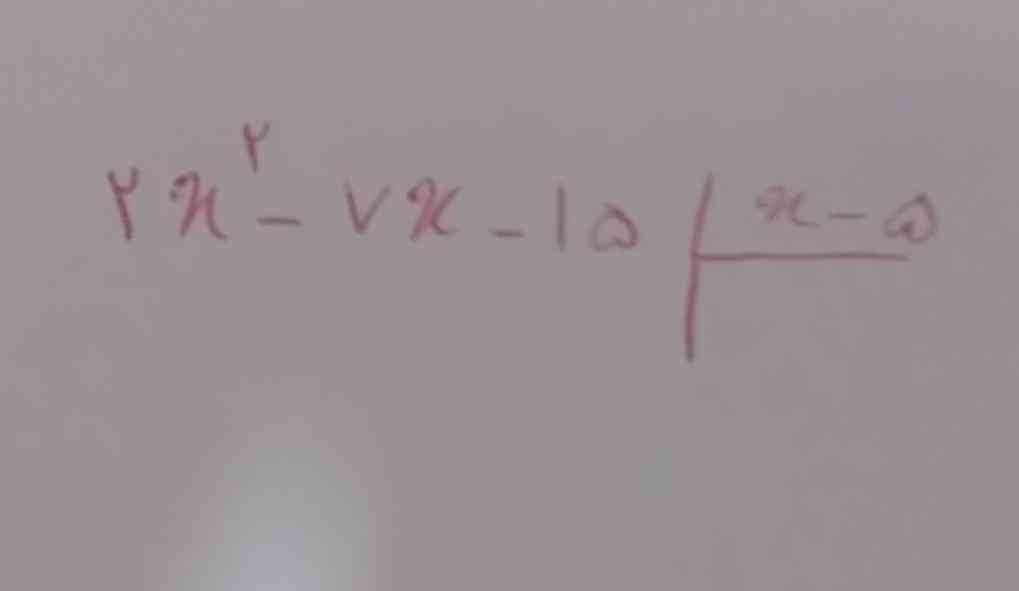 ۲x² - ۷x - ۱۵ | x - ۵